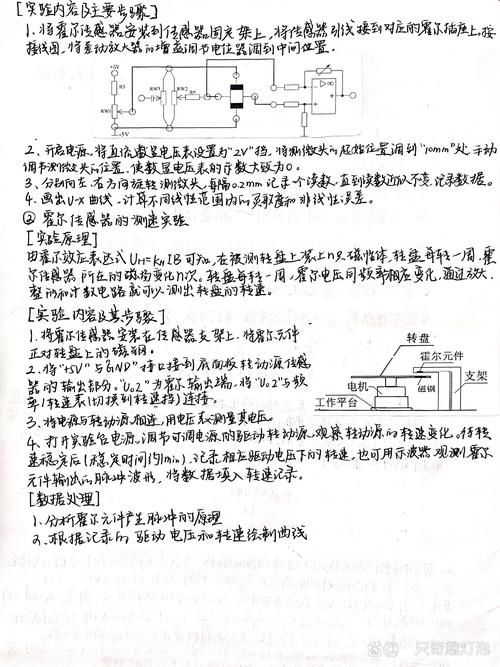 [实验内容及主要步骤]
1、将霍尔传感器安装到传感器固定架上,将传感器引线接到对应的霍尔插座上。按
接线图,将差动放大器的增益调节电位器调到中间位置。
+5V
R5
RW1
-5V
RW3
RW2
R9
2、开启电源,将直流数显电压表设置为"2V"挡,将测微头的起始位置调到"10mm"处,手动
调节测微头的位置,使数显电压表的示数大致为0。
3、分别向左、右方向旋转测微头,每隔0.2mm记录一个读数,直到读数近似不变,记录数据。
4、画出U-X曲线,计算不同线性范围内的灵敏度和非线性误差。
② 霍尔传感器的测速实验
[实验原理]
由霍尔效应表达式UH=KHIB可知,在被测转盘上装上n只磁性体,转盘每转一周,霍
尔传感器所在的磁场变化n次。转盘每转一周,霍尔电压同频率相应变化,通过放大、
整形和计数电路就可以测出转盘的转速。
[实验内容及其步骤]
1、将霍尔传感器安装在传感器支架上,将霍尔元件
正对转盘上的磁钢。
2、将"+5V"与GND"接口接到底面板转动源传感
器的输出部分。"Uo2"为霍尔输出端,将"Uo2"与频
率/转速表(切换到转速挡)连接。
转盘
霍尔元件
磁钢
支架
电机
工作平台
3、将电源与转动源相连,用电压表测量其电压。
4、打开实验台电源,调节可调电源的驱动转动源,观察转动源的转速变化。待转
速稳定后(稳定时间约1min),记录相应驱动电压下的转速,也可用示波器观测霍尔
元件输出的脉冲波形,将数据填入转速记录。
[数据处理]
1、分析霍尔元件产生脉冲的原理
2、根据记录的驱动电压和转速绘制曲线
只奇趣灯泡